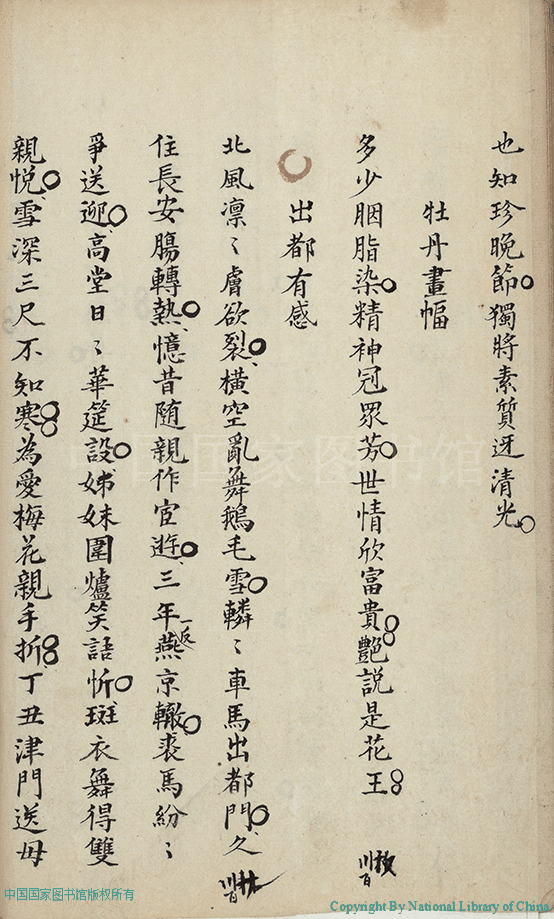 也知珍晚節獨將素質迓清光
牡丹畫幅
多少胭脂染精神冠眾芳世情欣富貴艷說是花王
出都有感
北風凛〻膚欲裂橫空亂舞鵝毛雪轔〻車馬出都門久
住長安腸轉熱憶昔随親作宦遊三年一返燕京轍裘馬紛〻
爭送迎高堂日〻華筵設姊妹圍爐笑語忻斑衣舞得雙
親悦雪深三尺不知寒為愛梅花親手折丁丑津門送母
中国国家图书馆
中国国家图书馆版权所有
Copyright By National Library of China